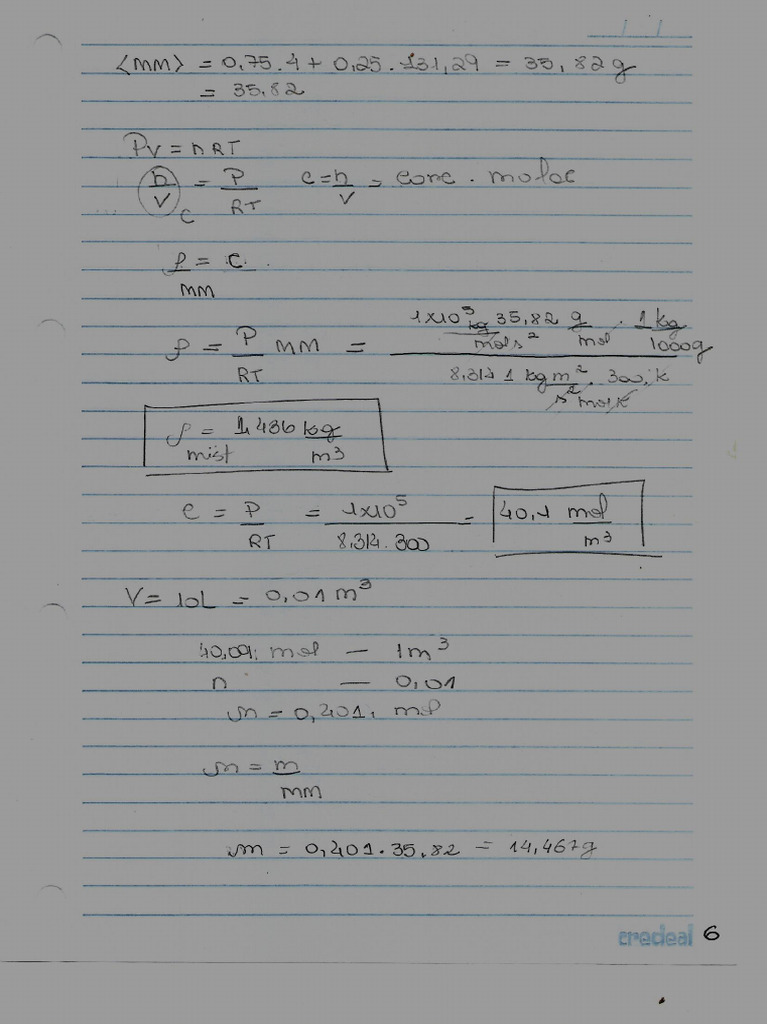 ⟨MM⟩ = 0,75.4 + 0,25.131,29 = 35,82g
= 35,82
PV = nRT
n/V = P/RT c = n/V = conc. molar
C
ρ/MM = C.
ρ = P/RT MM = 1x10⁵ kg/mol s² 35,82 g/mol . 1kg/1000g
8,314 1 kg m²/s² mol K . 300 K
ρ mist = 1,436 kg/m³
C = P/RT = 1x10⁵/8,314.300 = 40,1 mol/m³
V = 10L = 0,01 m³
40,09 mol — 1m³
n — 0,01
n = 0,401 mol
n = m/MM
m = 0,401.35,82 = 14,467g
credeal 6